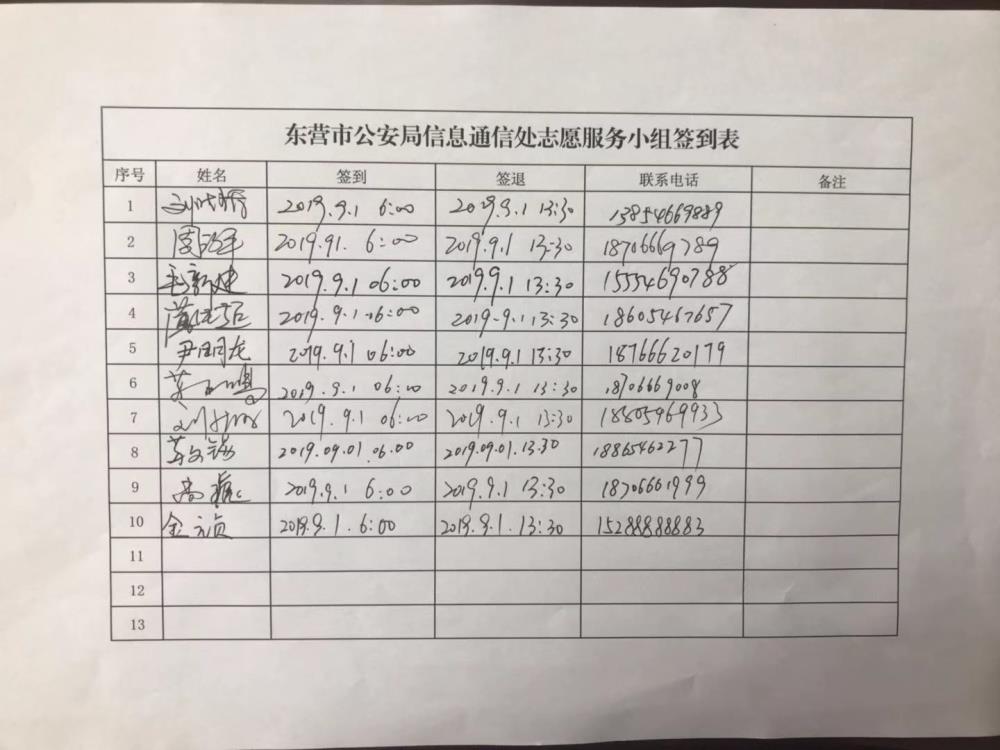 东营市公安局信息通信处志愿服务小组签到表
序号 姓名 签到 签退 联系电话 备注
1 2019.9.1 6:00 2019.9.1 13:30 13854669889
2 2019.91. 6:00 2019.9.1 13-30 18706669789
3 毛新建 2019.9.1 06:00 2019.9.1 13:30 15554690788
4 2019.9.1.06:00 2019-9.1 13:30 18605467657
5 尹国龙 2019.9.1 06:00 2019.9.1 13:30 18766620179
6 2019.9.1 06:00 2019.9.1 13:30 18706669008
7 2019.9.1 06:00 2019.9.1 13:30 18805969933
8 2019.09.01.06.00 2019.09.01.13.30 18865462277
9 2019.9.1 6:00 2019.9.1 13:30 18706661999
10 金 2019.9.1.6:00 2019.9.1.13:30 15288888883
11
12
13